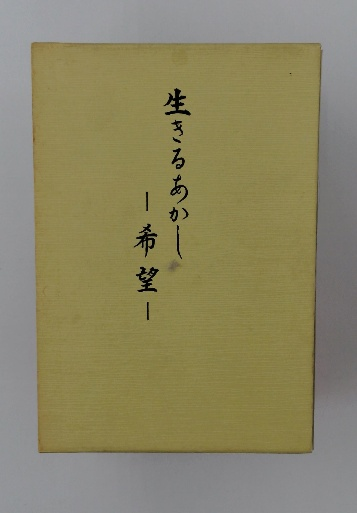 生きるあかし
―希望―